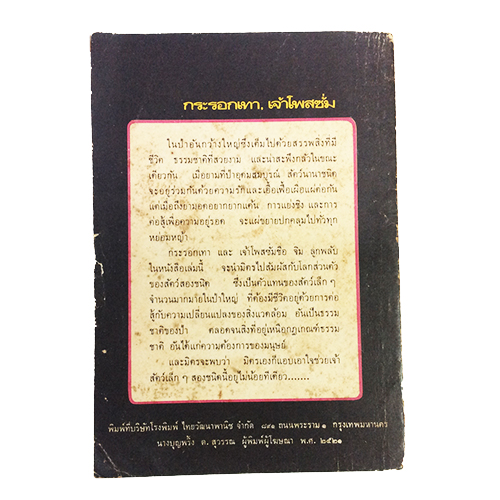 กระรอกเทา, เจ้าโพสซั่ม
ในป่าอันกว้างใหญ่ซึ่งเต็มไปด้วยสรรพสิ่งที่มี
ชีวิต ธรรมชาติที่สวยงาม และน่าสะพึงกลัวในขณะ
เดียวกัน เมื่อยามที่ป่าอุดมสมบูรณ์ สัตว์นานาชนิด
จะอยู่ร่วมกันด้วยความรักและเอื้อเฟื้อเผื่อแผ่ต่อกัน
แต่เมื่อถึงยามอดอยากยากแค้น การแย่งชิง และการ
ต่อสู้เพื่อความอยู่รอด จะแผ่ขยายปกคลุมไปทั่วทุก
หย่อมหญ้า
กระรอกเทา และ เจ้าโพสซั่มชื่อ จิม ลูกพลับ
ในหนังสือเล่มนี้ จะนำมิตรไปสัมผัสกับโลกส่วนตัว
ของสัตว์สองชนิด ซึ่งเป็นตัวแทนของสัตว์เล็ก ๆ
จำนวนมากมายในป่าใหญ่ ที่ต้องมีชีวิตอยู่ด้วยการต่อ
สู้กับความเปลี่ยนแปลงของสิ่งแวดล้อม อันเป็นธรรม
ชาติของป่า ตลอดจนสิ่งที่อยู่เหนือกฎเกณฑ์ธรรม
ชาติ อันได้แก่ความต้องการของมนุษย์
และมิตรจะพบว่า มิตรเองก็แอบเอาใจช่วยเจ้า
สัตว์เล็ก ๆ สองชนิดนี้อยู่ไม่น้อยทีเดียว.......
พิมพ์ที่บริษัทโรงพิมพ์ ไทยวัฒนาพานิช จำกัด ๘๙๑ ถนนพระราม ๑ กรุงเทพมหานคร
นางบุญพริ้ง ต. สุวรรณ ผู้พิมพ์ผู้โฆษณา พ.ศ. ๒๕๒๑